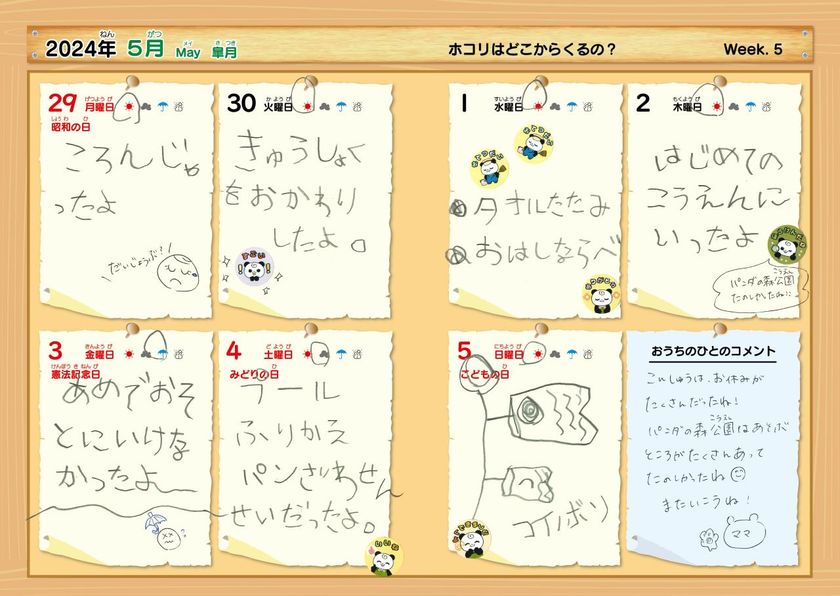 2024年 5月 May 皐月
ホコリはどこからくるの？
Week. 5
29 月曜日
昭和の日
ころんじゃ
ったよ
だいじょうぶ？！
30 火曜日
きゅうしょく
をおかわり
したよ。
すごい!!
1 水曜日
おてつだい
おてつだい
タオルたたみ
おはしならべ
ありがとう
2 木曜日
はじめての
こうえんに
いったよ
パンダの森公園
たのしかったね!!
3 金曜日
憲法記念日
あめでおそ
とにいけな
かったよ
4 土曜日
みどりの日
プール
ふりかえ
パンさいわせん
せいだったよ。
いいね
5 日曜日
こどもの日
コイノボリ
おうちのひとのコメント
こんしゅうは、お休みが
たくさんだったね!
パンダの森公園はあそぶ
ところがたくさんあって
たのしかったね
またいこうね!
ママ